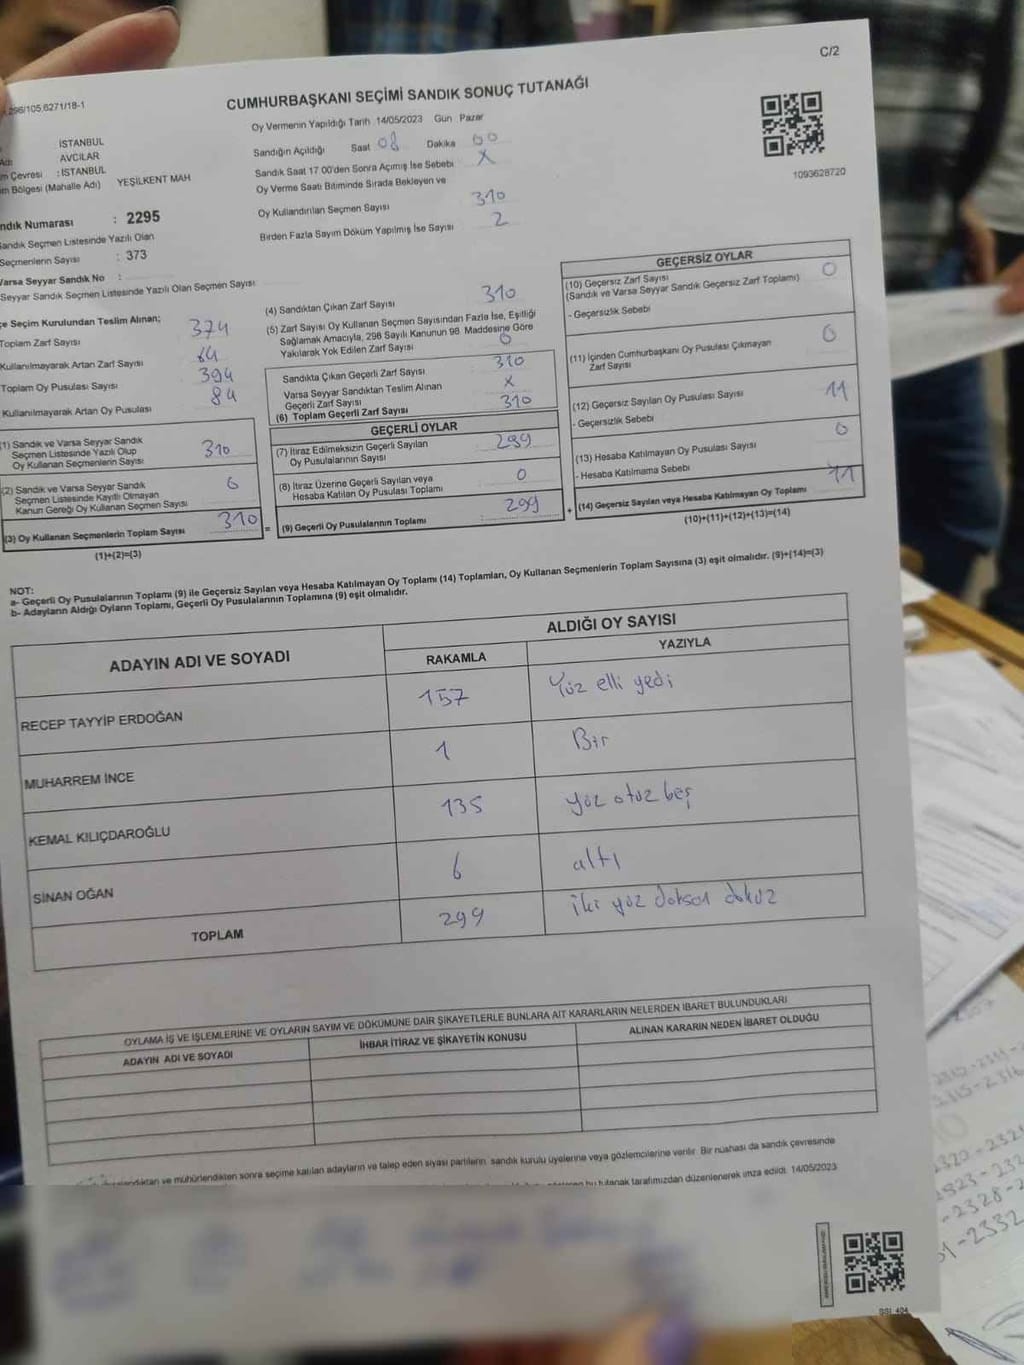 C/2
296/105,6271/18-1
CUMHURBAŞKANI SEÇİMİ SANDIK SONUÇ TUTANAĞI
1093628720
İSTANBUL
Adı AVCILAR
m Çevresi : İSTANBUL
m Bölgesi (Mahalle Adı) YEŞİLKENT MAH
ndık Numarası : 2295
Sandık Seçmen Listesinde Yazılı Olan
Seçmenlerin Sayısı : 373
Varsa Seyyar Sandık No :
Seyyar Sandık Seçmen Listesinde Yazılı Olan Seçmen Sayısı:
Oy Vermenin Yapıldığı Tarih :14/05/2023 Gün : Pazar
Sandığın Açıldığı Saat 08 Dakika 00
Sandık Saat 17.00'den Sonra Açımış İse Sebebi X
Oy Verme Saati Bitiminde Sırada Bekleyen ve
Oy Kullandırılan Seçmen Sayısı 310
Birden Fazla Sayım Döküm Yapılmış İse Sayısı 2
çe Seçim Kurulundan Teslim Alınan;
Toplam Zarf Sayısı 374
Kullanılmayarak Artan Zarf Sayısı 64
Toplam Oy Pusulası Sayısı 394
Kullanılmayarak Artan Oy Pusulası 84
(1) Sandık ve Varsa Seyyar Sandık
Seçmen Listesinde Yazılı Olup
Oy Kullanan Seçmenlerin Sayısı 310
(2) Sandık ve Varsa Seyyar Sandık
Seçmen Listesinde Kayıtlı Olmayan
Kanun Gereği Oy Kullanan Seçmen Sayısı 0
(3) Oy Kullanan Seçmenlerin Toplam Sayısı 310
(1)+(2)=(3)
(4) Sandıktan Çıkan Zarf Sayısı 310
(5) Zarf Sayısı Oy Kullanan Seçmen Sayısından Fazla İse, Eşitliği
Sağlamak Amacıyla, 298 Sayılı Kanunun 98. Maddesine Göre
Yakılarak Yok Edilen Zarf Sayısı 0
Sandıkta Çıkan Geçerli Zarf Sayısı 310
Varsa Seyyar Sandıktan Teslim Alınan
Geçerli Zarf Sayısı X
(6) Toplam Geçerli Zarf Sayısı 310
GEÇERLİ OYLAR
(7) İtiraz Edilmeksizin Geçerli Sayılan
Oy Pusulalarının Sayısı 299
(8) İtiraz Üzerine Geçerli Sayılan veya
Hesaba Katılan Oy Pusulası Toplamı 0
= (9) Geçerli Oy Pusulalarının Toplamı : 299
GEÇERSİZ OYLAR
(10) Geçersiz Zarf Sayısı 0
(Sandık ve Varsa Seyyar Sandık Geçersiz Zarf Toplamı)
- Geçersizlik Sebebi
(11) İçinden Cumhurbaşkanı Oy Pusulası Çıkmayan
Zarf Sayısı 0
(12) Geçersiz Sayılan Oy Pusulası Sayısı 11
- Geçersizlik Sebebi
(13) Hesaba Katılmayan Oy Pusulası Sayısı 0
- Hesaba Katılmama Sebebi
+ (14) Geçersiz Sayılan veya Hesaba Katılmayan Oy Toplamı 11
(10)+(11)+(12)+(13)=(14)
NOT:
a- Geçerli Oy Pusulalarının Toplamı (9) ile Geçersiz Sayılan veya Hesaba Katılmayan Oy Toplamı (14) Toplamları, Oy Kullanan Seçmenlerin Toplam Sayısına (3) eşit olmalıdır. (9)+(14)=(3)
b- Adayların Aldığı Oyların Toplamı, Geçerli Oy Pusulalarının Toplamına (9) eşit olmalıdır.
ADAYIN ADI VE SOYADI ALDIĞI OY SAYISI
RAKAMLA YAZIYLA
RECEP TAYYİP ERDOĞAN 157 Yüz elli yedi
MUHARREM İNCE 1 Bir
KEMAL KILIÇDAROĞLU 135 yüz otuz beş
SİNAN OĞAN 6 altı
TOPLAM 299 iki yüz doksan dokuz
OYLAMA İŞ VE İŞLEMLERİNE VE OYLARIN SAYIM VE DÖKÜMÜNE DAİR ŞİKAYETLERLE BUNLARA AİT KARARLARIN NELERDEN İBARET BULUNDUKLARI
ADAYIN ADI VE SOYADI İHBAR İTİRAZ VE ŞİKAYETİN KONUSU ALINAN KARARIN NEDEN İBARET OLDUĞU
sonra seçime katılan adayların ve talep eden siyasi partilerin sandık kurulu üyelerine veya gözlemcilerine verilir. Bir nüshası da sandık çevresinde
bu tutanak tarafımızdan düzenlenerek imza edildi. 14/05/2023